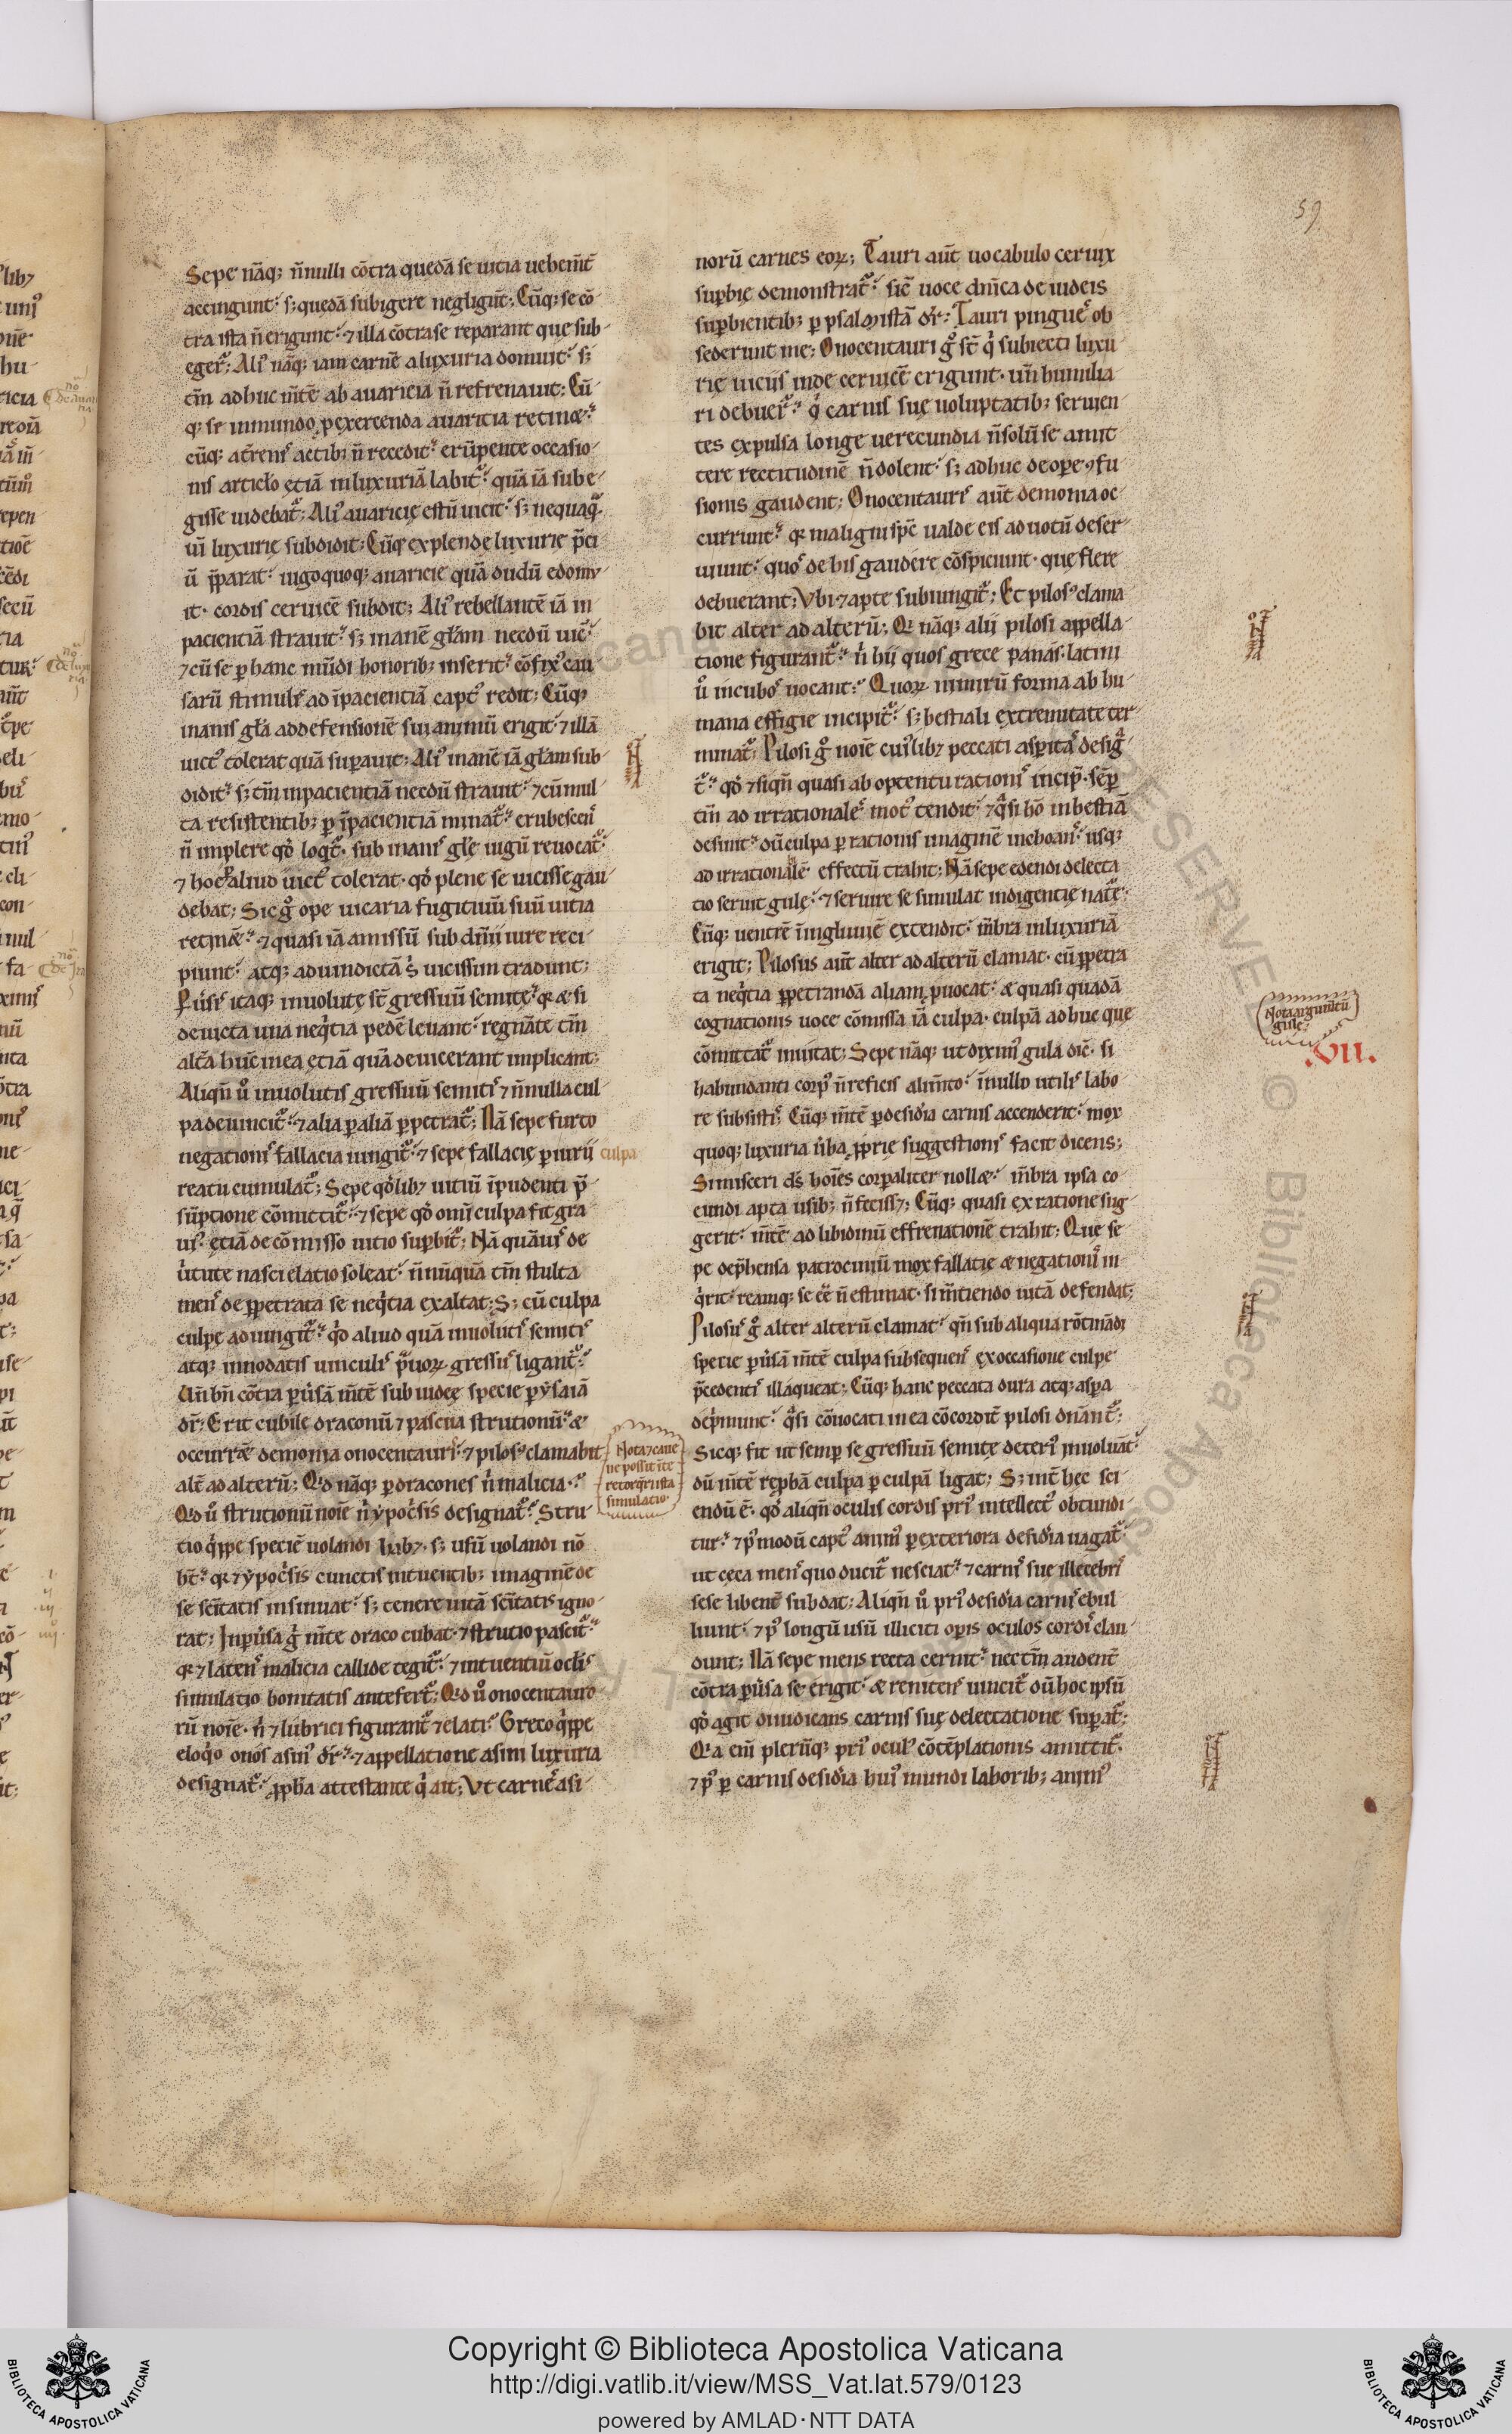 59
Sepe nãq; ñnulli cõtra quedã se uitia uehem̃t
accingunt. s; quedã subigere negligũt; Cũq; se cõ
tra ista ñ erigunt. ⁊ illa cõtra se reparant que sub
eger̃; Aliꝰ nãq; iam carnẽ a luxuria domuit. s;
tm̃ adhuc m̃tẽ ab auaricia ñ refrenauit; Cũ
q; se in mundo ꝓ exercenda auaricia retinæ.
cũq; at̃renis actib; ñ recedit. erũpente occasio
nis articlo etiã in luxuriã labit̃. quã iã sube
gisse uidebat̃; Aliꝰ auaricię estũ uicit. s; nequaq̃
uĩ luxurie subdidit; Cũq; explende luxurie p̃ci
ũ p̃parat. iugo quoq; auaricie quã dudũ edomu
it. cordis ceruicẽ subdit; Aliꝰ rebellantẽ iã in
pacientiã strauit. s; inanẽ gl̃am necdũ uic̃.
⁊ cũ se ꝑ hanc mũdi honorib; inserit. cõfixꝰ cau
sarũ stimulis ad ĩpacientiã captꝰ redit; Cũq;
inanis gl̃a ad defensionẽ sui animũ erigit. ⁊ illã
uictꝰ tolerat quã suꝑauit; Aliꝰ inanẽ iã gl̃am sub
didit. s; tm̃ inpacientiã necdũ strauit. ⁊ cũ mul
ta resistentib; ꝑ ĩpacientiã minat̃. erubescen̾
ñ implere qđ loqt̃. sub inanis gl̃e iugũ reuocat̃.
⁊ hoc ꝑ aliud uictꝰ tolerat. qđ plene se uicisse gau
debat; Sic gͦ ope uicaria fugitiuũ suũ uitia
retinæ̃. ⁊ quasi iã amissũ sub dm̃ij iure reci
piunt. atq; ad uindictã s̓ uicissim tradunt;
Puͥse itaq; inuolute st̃ gressuũ semitę. qꝛ æ si
deuicta una neqͥtia pedẽ leuant. regnãte tm̃
alt̃a hũc in ea etiã quã deuicerant implicant;
Aliqñ uͦ inuolutis gressuũ semitis ⁊ ñnulla cul
pa deuincit̃. ⁊ alia ꝑ aliã ꝑpetrat̃; Nã sepe furto
negationis fallacia iungit̃. ⁊ sepe fallacię ꝑiurij culpa
reatu cumulat̃; Sepe qđlib; uitiũ ĩpudenti p̃
sũptione cõmittit̃. ⁊ sepe qđ omĩ culpa fit gra
uiꝰ. etiã de cõmisso uitio suꝑbit̃; Nã quãuis de
uͥtute nasci elatio soleat. ñnũquã tm̃ stulta
mens de ꝑpetrata se neqͥtia exaltat; S; cũ culpa
culpe adiungit̃. qͥd aliud quã inuolutis semitis
atq; innodatis uinculis p̃uoꝝ gressus ligant̃.
Uñ bñ cõtra ꝑuͥsã m̃tẽ sub iudeę specie ꝑ ysaiã
dr̃; Erit cubile draconũ ⁊ pascua strutionũ. æ
occurræ̃ demonia onocentauris. ⁊ pilosꝰ clamabit
alt̃ ad alterũ; Qͥd nãq; ꝑ dracones ñ malicia.
Nota ⁊ caue
ne possit ĩ te
retorqͥri ista
simulatio.
Qͥd uͦ strutionũ noĩe ñ ypocͥsis designat̃. Stru
tio qͥppe speciẽ uolandi hab;. s; usũ uolandi nõ
ht̃. qꝛ ⁊ ypocͥsis cunctis intuentib; imaginẽ de
se sc̃itatis insinuat. s; tenere uitã sc̃itatis igno
rat; In ꝑuͥsa gͦ m̃te draco cubat. ⁊ strutio pascit̃.
qꝛ ⁊ latens malicia callide tegit̃. ⁊ intuentiũ oclis
simulatio bonitatis antefert̃; Qͥd uͦ onocentauro
rũ noĩe. ñ ⁊ lubrici figurant̃ ⁊ elati. Greco qͥppe
eloqͥo onos asinꝰ dr̃. ⁊ appellatione asini luxuria
designat̃. ꝓpħa attestante qͥ ait; Vt carnes asi
norũ carnes eoꝝ; Tauri aũt uocabulo ceruix
suꝑbię demonstrat̃. sic̃ uoce dñica de iudeis
suꝑbientib; ꝑ psalmistã dr̃; Tauri pingues ob
sederunt me; Onocentauri gͦ st̃ qͥ subiecti luxu
rię uicijs inde ceruicẽ erigunt. uñ humilia
ri debuer̃. qͥ carnis suę uoluptatib; seruien
tes expulsa longe uerecundia ñ solũ se amit
tere rectitudinẽ ñ dolent. s; adhuc de oꝑe ꝯfu
sionis gaudent; Onocentauris aũt demonia oc
currunt. qꝛ maligni spc̃ ualde eis ad uotũ deser
uiunt. quos de his gaudere cõspiciunt. que flere
debuerant; Vbi ⁊ apte subiungit̃; Et pilosꝰ clama
bit alter ad alterũ; Qͥ nãq; alij pilosi appella
tione figurant̃. ñ hij quos grece panas. latini
uͦ incubos uocant. Quoꝝ nimirũ forma ab hu
mana effigie incipit̃. s; bestiali extremitate ter
minat̃; Pilosi gͦ noĩe cuiꝰlib; peccati asꝑitas desig̃
t̃. qđ ⁊ siqñ quasi ab optentu rationis incip̃. sẽꝑ
tm̃ ad irrationales motꝰ tendit. ⁊ q̃si hõ in bestiã
desinit. dũ culpa ꝑ rationis imaginẽ inchoans. usq;
ad irrationalẽ effectũ trahit; Nã sepe edendi delecta
tio seruit gulę. ⁊ seruire se simulat indigentie nat̃e.
Cũq; uentrẽ ĩ ingluuiẽ extendit. m̃bra in luxuriã
erigit; Pilosus aũt alter ad alterũ clamat. cũ ꝑpetra
ta neqͥtia ꝑpetrandã aliam ꝓuocat. æ quasi quadã
cognationis uoce cõmissa iã culpa. culpã adhuc que
Nota argum̃tũ
gule;
.VII.
cõmittat̃ inuitat; Sepe nãq; ut diximꝰ gula dic̃. si
habundanti corpꝰ ñ reficis alim̃to. ĩ nullo utilis labo
re subsistis; Cũq; m̃tẽ ꝑ desidia carnis accenderit. mox
quoq; luxuria uͥba ꝓprię suggestionis facit dicens;
Si misceri ds̃ hoĩes corꝑaliter nollæ. m̃bra ipsa co
eundi apta usib; ñ feciss;; Cũq; quasi ex ratione sug
gerit. m̃tẽ ad libidinũ effrenationẽ trahit; Que se
pe dep̃hensa patrociniũ mox fallatię æ negationis in
qͥrit. reamq; se eẽ ñ estimat. si m̃tiendo uitã defendat;
Pilosus gͦ alter alterũ clamat. qñ sub aliqua rõtinãdi
specie ꝑuͥsã m̃tẽ culpa subsequens ex occasione culpe
p̃cedentis illaqueat; Cũq; hanc peccata dura atq; asꝑa
dep̃munt. q̃si cõuocati in ea cõcordit̃ pilosi dñant̃;
Sicq; fit ut semꝑ se gressuũ semite deteriꝰ inuoluãt.
dũ m̃tẽ reꝓbã culpa ꝑ culpã ligat; S; int̃ hec sci
endũ ẽ. qđ aliqñ oculis cordis priꝰ intellectꝰ obtundi
tur. ⁊ pꝰmodũ captꝰ animꝰ ꝑ exteriora desidia uagat̃.
ut ceca mens quo ducit̃ nesciat. ⁊ carnis sue illecebris
sese libent̃ subdat; Aliqñ uͦ priꝰ desidia carnis ebul
liunt. ⁊ pꝰ longũ usũ illiciti oꝑis oculos cordis clau
dunt; Nã sepe mens recta cernit. nec tm̃ audent̃
cõtra ꝑuͥsa se erigit. æ renitens uincit̃ dũ hoc ipsũ
qđ agit diiudicans carnis suę delectatione suꝑat̃;
Qͥa eni plerũq; priꝰ oculꝰ cõtẽplationis amittit̃.
⁊ pꝰ ꝑ carnis desidia huiꝰ mundi laborib; animꝰ
Copyright © Biblioteca Apostolica Vaticana
http://digi.vatlib.it/view/MSS_Vat.lat.579/0123
powered by AMLAD·NTT DATA
BIBLIOTECA APOSTOLICA VATICANA
BIBLIOTECA APOSTOLICA VATICANA